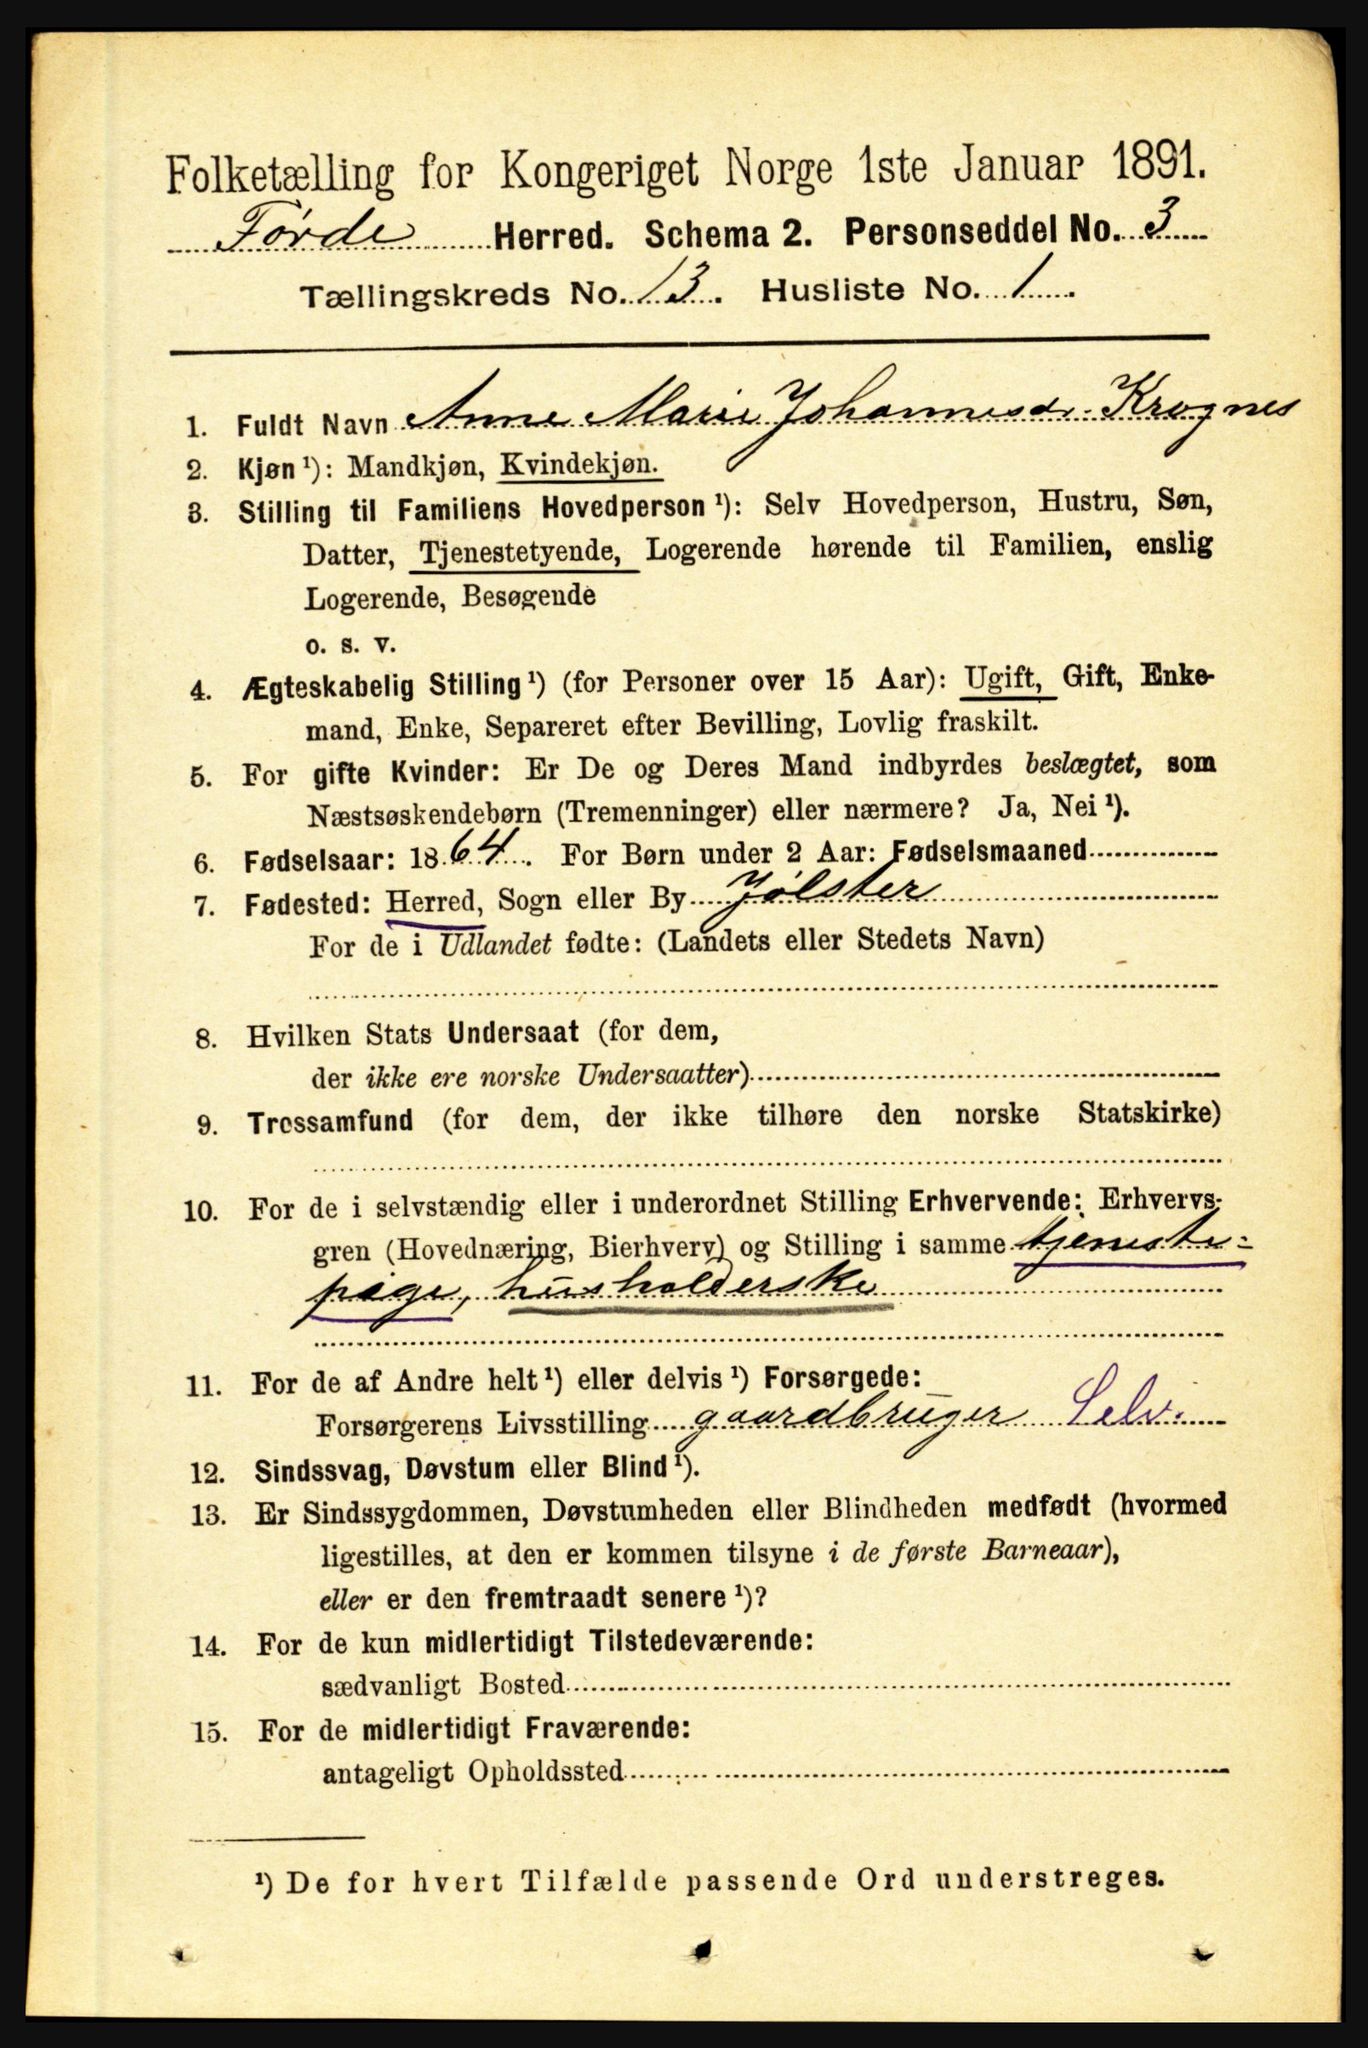 Folketælling for Kongeriget Norge 1ste Januar 1891.
Førde Herred. Schema 2. Personseddel No. 3
Tællingskreds No. 13. Husliste No. 1
1. Fuldt Navn Anne Marie Johannesd. Krognes
2. Kjøn ¹): Mandkjøn, Kvindekjøn.
3. Stilling til Familiens Hovedperson ¹): Selv Hovedperson, Hustru, Søn,
Datter, Tjenestetyende, Logerende hørende til Familien, enslig
Logerende, Besøgende
o. s. v.
4. Ægteskabelig Stilling ¹) (for Personer over 15 Aar): Ugift, Gift, Enke-
mand, Enke, Separeret efter Bevilling, Lovlig fraskilt.
5. For gifte Kvinder: Er De og Deres Mand indbyrdes beslægtet, som
Næstsøskendebørn (Tremenninger) eller nærmere? Ja, Nei ¹).
6. Fødselsaar: 1864. For Børn under 2 Aar: Fødselsmaaned
7. Fødested: Herred, Sogn eller By Jølster
For de i Udlandet fødte: (Landets eller Stedets Navn)
8. Hvilken Stats Undersaat (for dem,
der ikke ere norske Undersaatter)
9. Trossamfund (for dem, der ikke tilhøre den norske Statskirke)
10. For de i selvstændig eller i underordnet Stilling Erhvervende: Erhvervs-
gren (Hovednæring, Bierhverv) og Stilling i samme tjeneste-
pige, husholderske
11. For de af Andre helt ¹) eller delvis ¹) Forsørgede:
Forsørgerens Livsstilling gaardbruger Selv.
12. Sindssvag, Døvstum eller Blind ¹).
13. Er Sindssygdommen, Døvstumheden eller Blindheden medfødt (hvormed
ligestilles, at den er kommen tilsyne i de første Barneaar),
eller er den fremtraadt senere ¹)?
14. For de kun midlertidigt Tilstedeværende:
sædvanligt Bosted
15. For de midlertidigt Fraværende:
antageligt Opholdssted
¹) De for hvert Tilfælde passende Ord understreges.